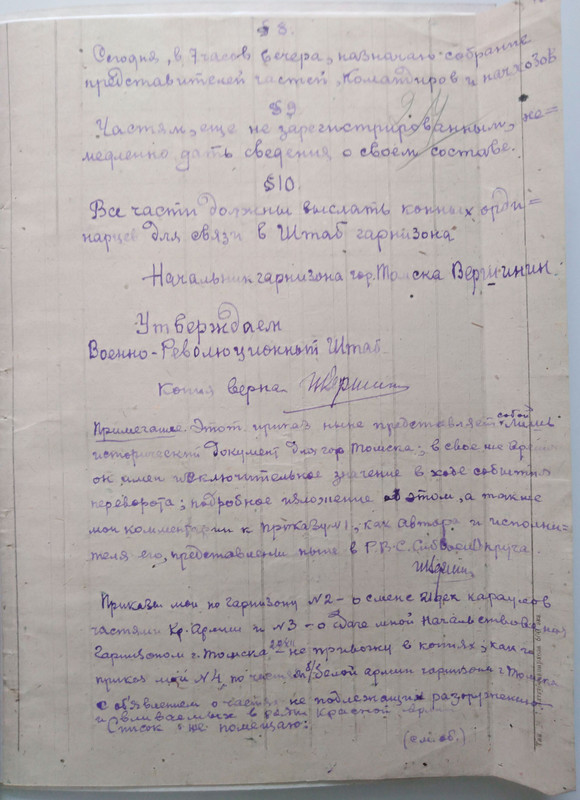 § 8.
Сегодня, в 7 часов вечера, назначаю собрание
представителей частей, командиров и начхозов
§ 9
Частям, еще не зарегистрированным, не=
медленно дать сведения о своем составе.
§10.
Все части должны выслать конных орди=
нарцев для связи в Штаб гарнизона
Начальник гарнизона гор. Томска Вершинин.
Утверждаем
Военно-Революционный Штаб.
Копия верна
Примечание. Этот приказ ныне представляет собой лишь
исторический документ для гор Томска; в свое же время
он имел исключительное значение в ходе события
переворота; подробное изложение об этом, а также
мои комментарии к приказу №1, как автора и исполни=
теля его, представлены ныне в Р.В.С. Сиб. Округа.
Приказы мои по гарнизону №2 - о смене караулов
частями Кр. Армии и №3 - о сдаче мной начальствования
гарнизоном г. Томска - не привожу в копиях, как и
приказ мой №4, по частям б/белой армии гарнизона г Томска
с об'явлением о частях не подлежащих разоружению
и вливаемых в ряды Красной
Список не помещаю.
(см. об.)